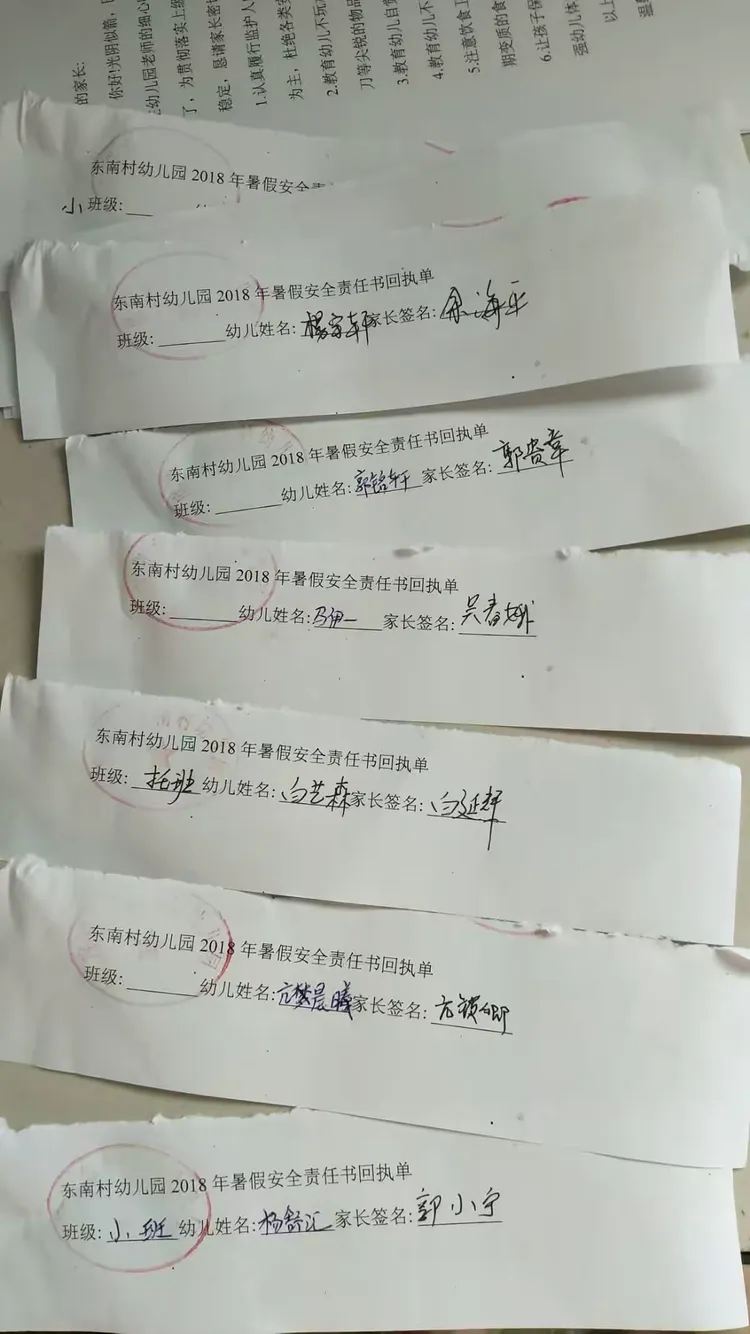 的家长:
你好!光阴似箭,
幼儿园老师的细心
了,为贯彻落实上级
稳定,恳请家长密
1.认真履行监护人
为主,杜绝各类
2.教育幼儿不玩
刀等尖锐的物品
3.教育幼儿自觉
4.教育幼儿不
5.注意饮食工
期变质的食
6.让孩子保
强幼儿体
以上
温
东南村幼儿园 2018 年暑假安全责
小班级:
东南村幼儿园 2018 年暑假安全责任书回执单
班级: 幼儿姓名: 杨家轩 家长签名: 余海平
东南村幼儿园 2018 年暑假安全责任书回执单
班级: 幼儿姓名: 郭铭轩 家长签名: 郭贵章
东南村幼儿园 2018 年暑假安全责任书回执单
班级: 幼儿姓名: 马伊一 家长签名: 吴春娥
东南村幼儿园 2018 年暑假安全责任书回执单
班级: 托班 幼儿姓名: 白艺森 家长签名: 白延辉
东南村幼儿园 2018 年暑假安全责任书回执单
班级: 幼儿姓名: 亢梦晨曦 家长签名: 亢锁卿
东南村幼儿园 2018 年暑假安全责任书回执单
班级: 小班 幼儿姓名: 杨舒汇 家长签名: 郭小宁